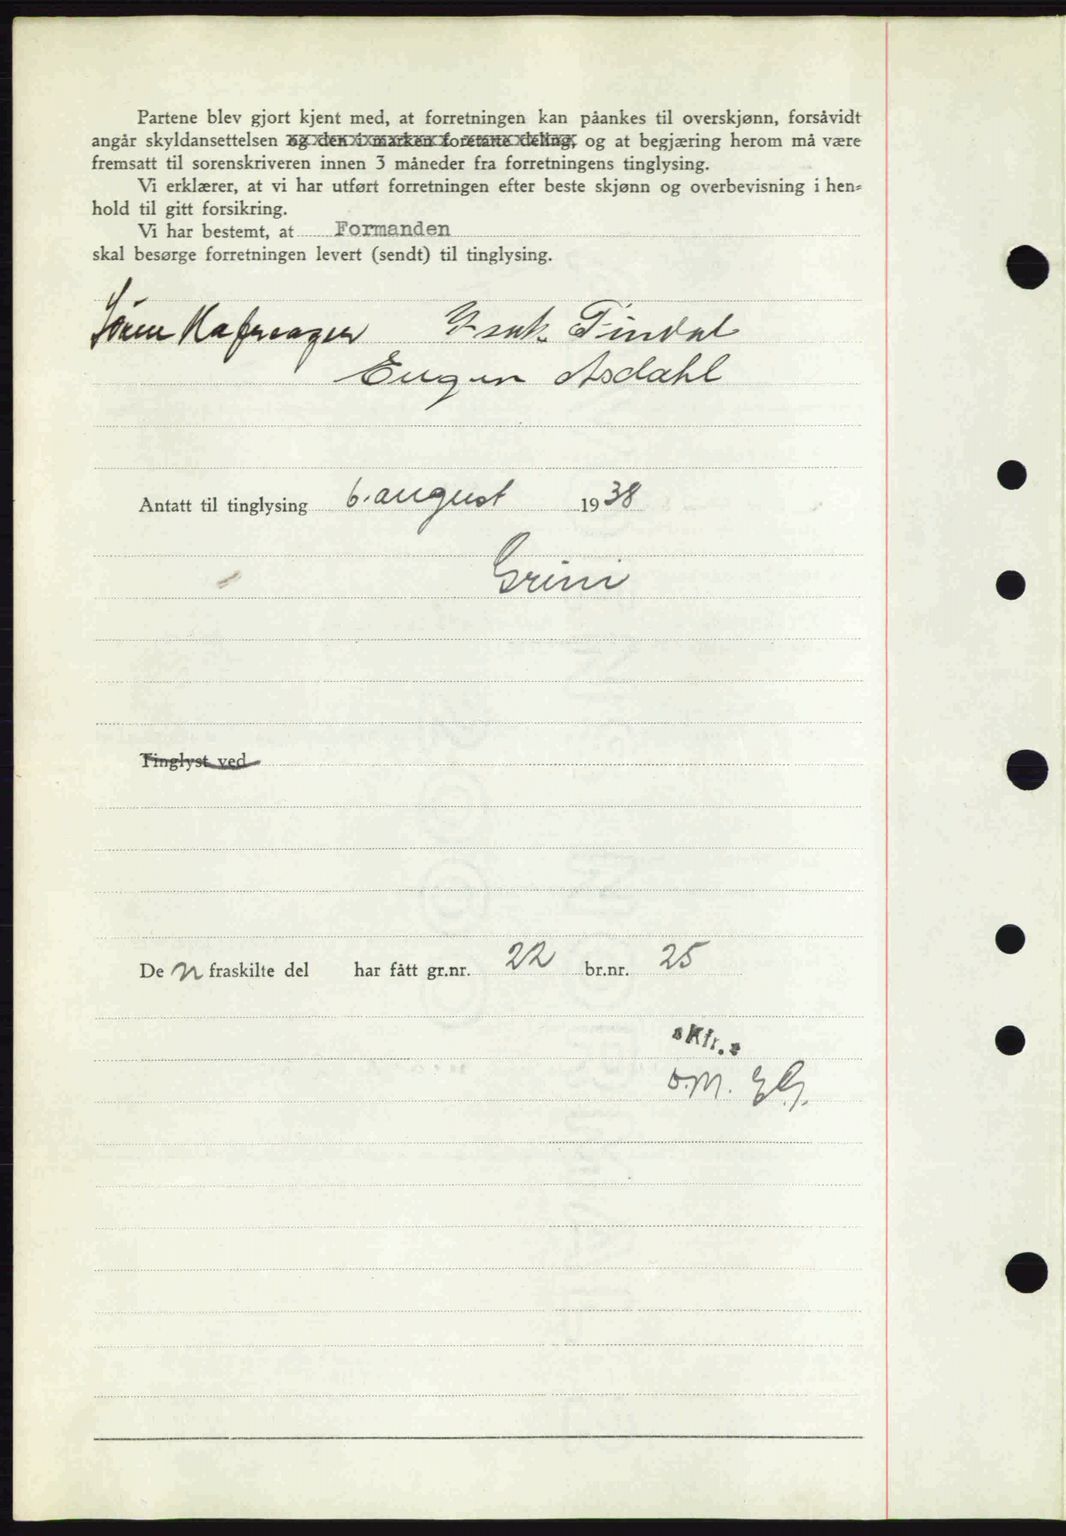 Partene blev gjort kjent med, at forretningen kan påankes til overskjønn, forsåvidt
angår skyldansettelsen og den i marken foretatte deling, og at begjæring herom må være
fremsatt til sorenskriveren innen 3 måneder fra forretningens tinglysing.
Vi erklærer, at vi har utført forretningen efter beste skjønn og overbevisning i hen=
hold til gitt forsikring.
Vi har bestemt, at Formanden
skal besørge forretningen levert (sendt) til tinglysing.
Søren Isak Tindal
Eugen Asdahl
Antatt til tinglysing 6. august 1938
Grini
Tinglyst ved
De n fraskilte del har fått gr.nr. 22 br.nr. 25
Kfr.
o.M. EG.